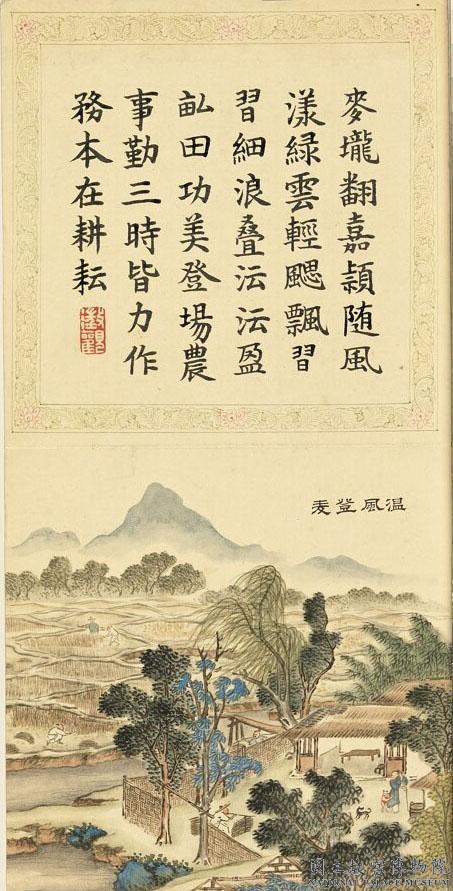 麥壠翻嘉頴随風
漾緑雲輕颸飄習
習細浪叠沄沄盈
畆田功美登場農
事勤三時皆力作
務本在耕耘
温風登麦
國立故宮博物院
NATIONAL PALACE MUSEUM